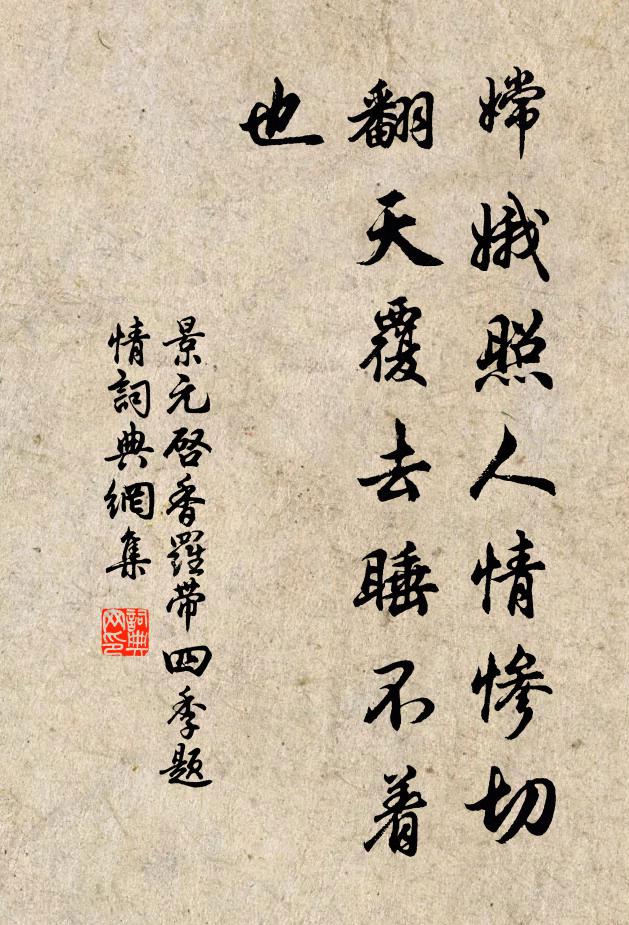 嫦娥照人情慘切
翻天覆去睡不着
也
景元啓香羅帶四季題
情詞典網集
詞典
网印